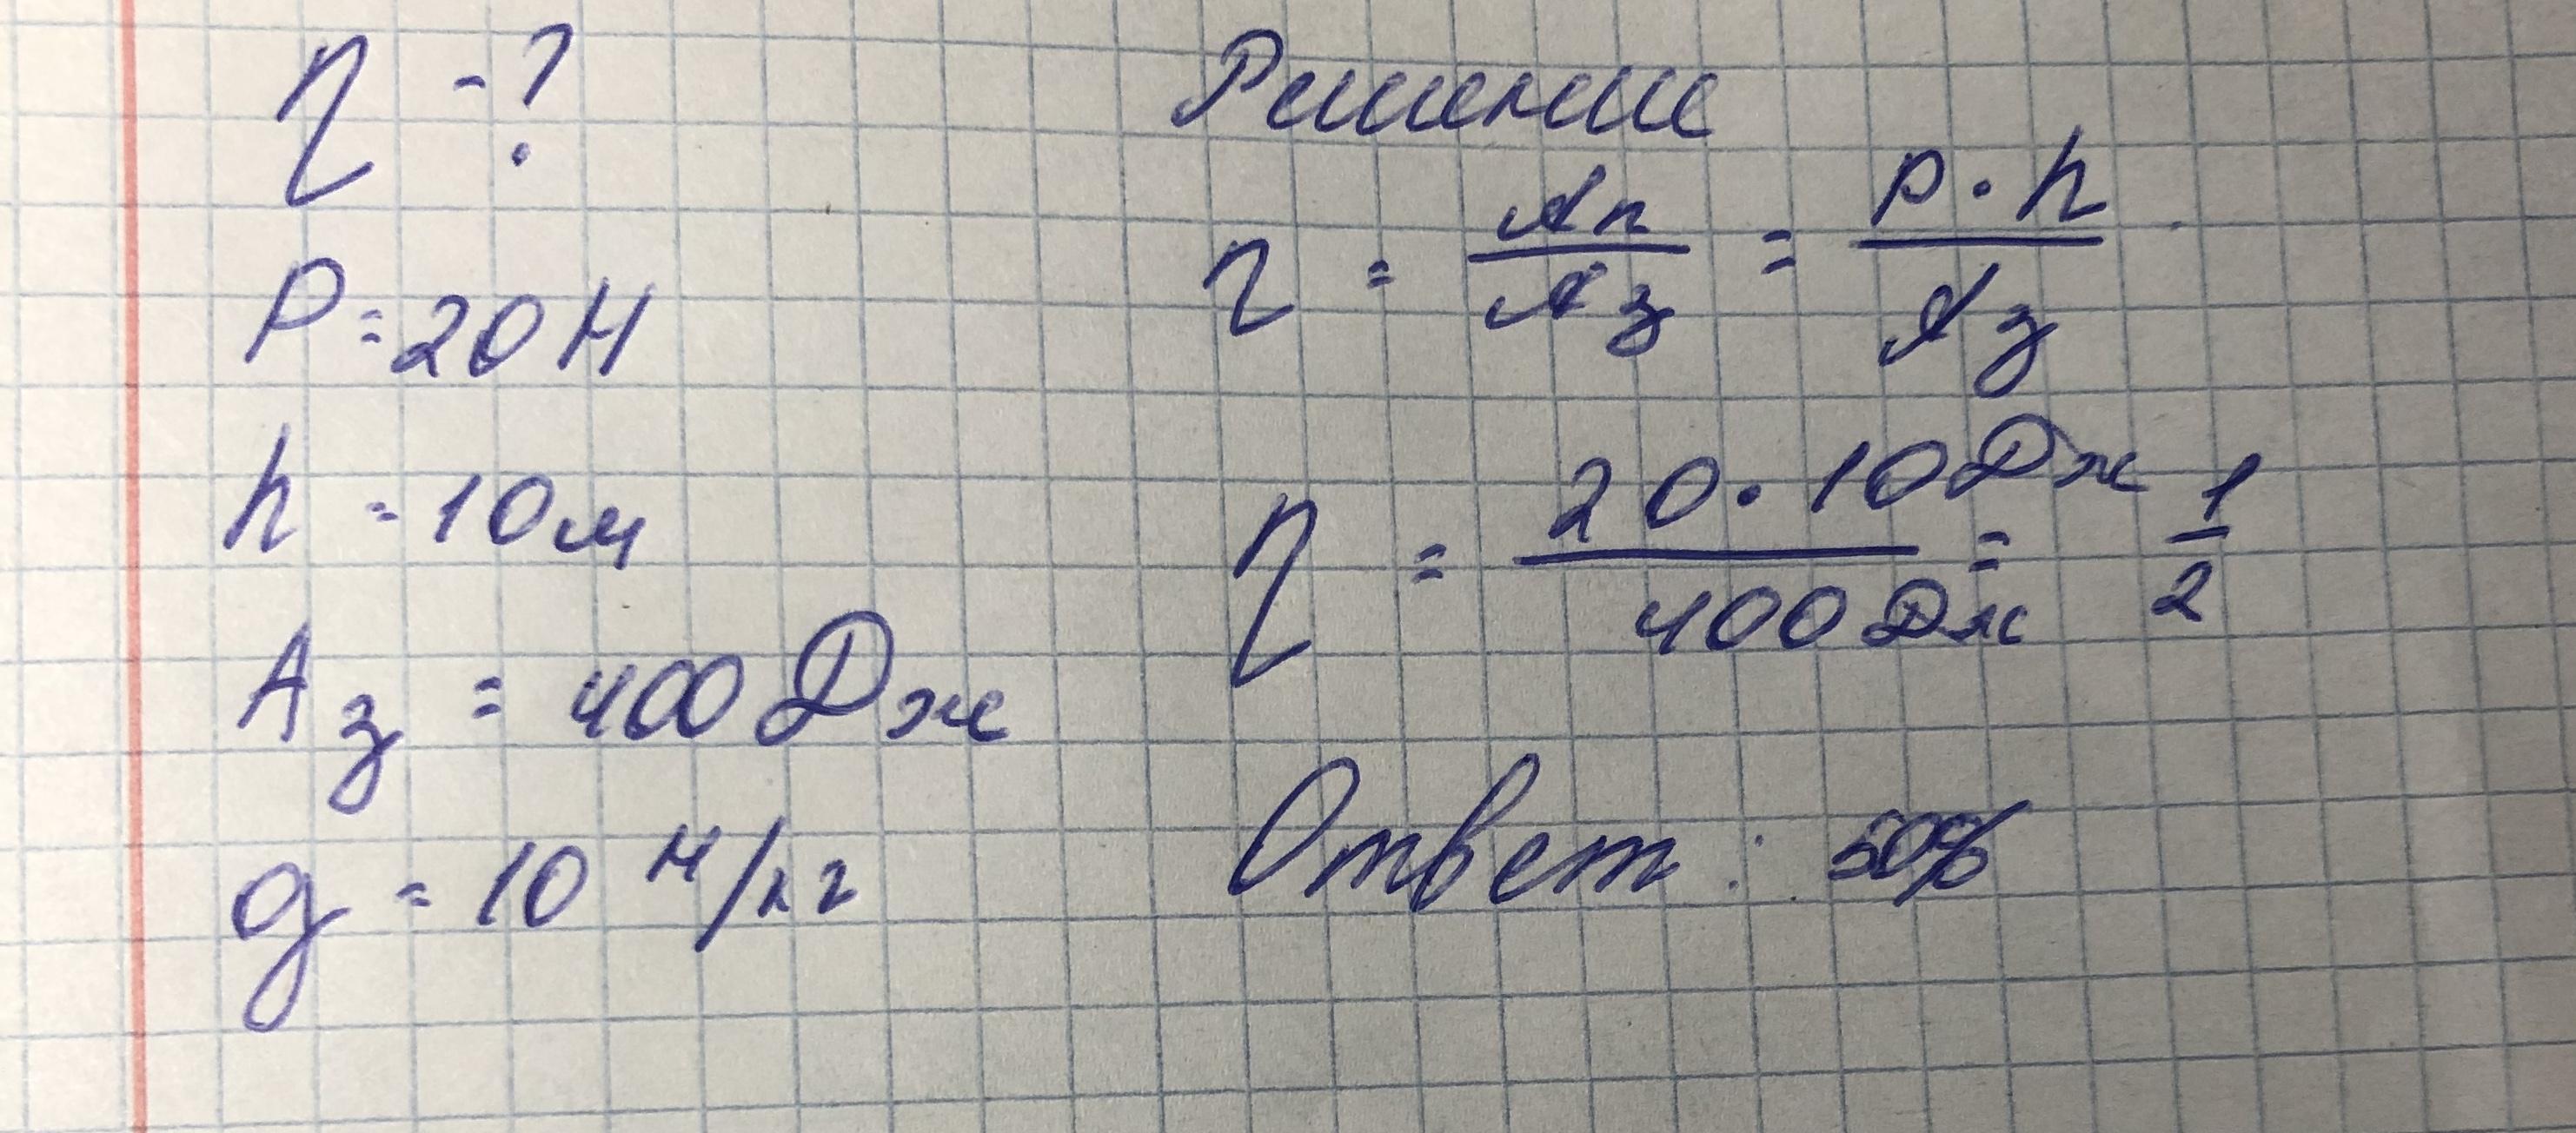 η - ?
P = 20 Н
h = 10 м
Aз = 400 Дж
g = 10 Н/кг
Решение
η = Aп / Aз = P · h / Aз
η = 20 · 10 Дж / 400 Дж = 1/2
Ответ: 50%